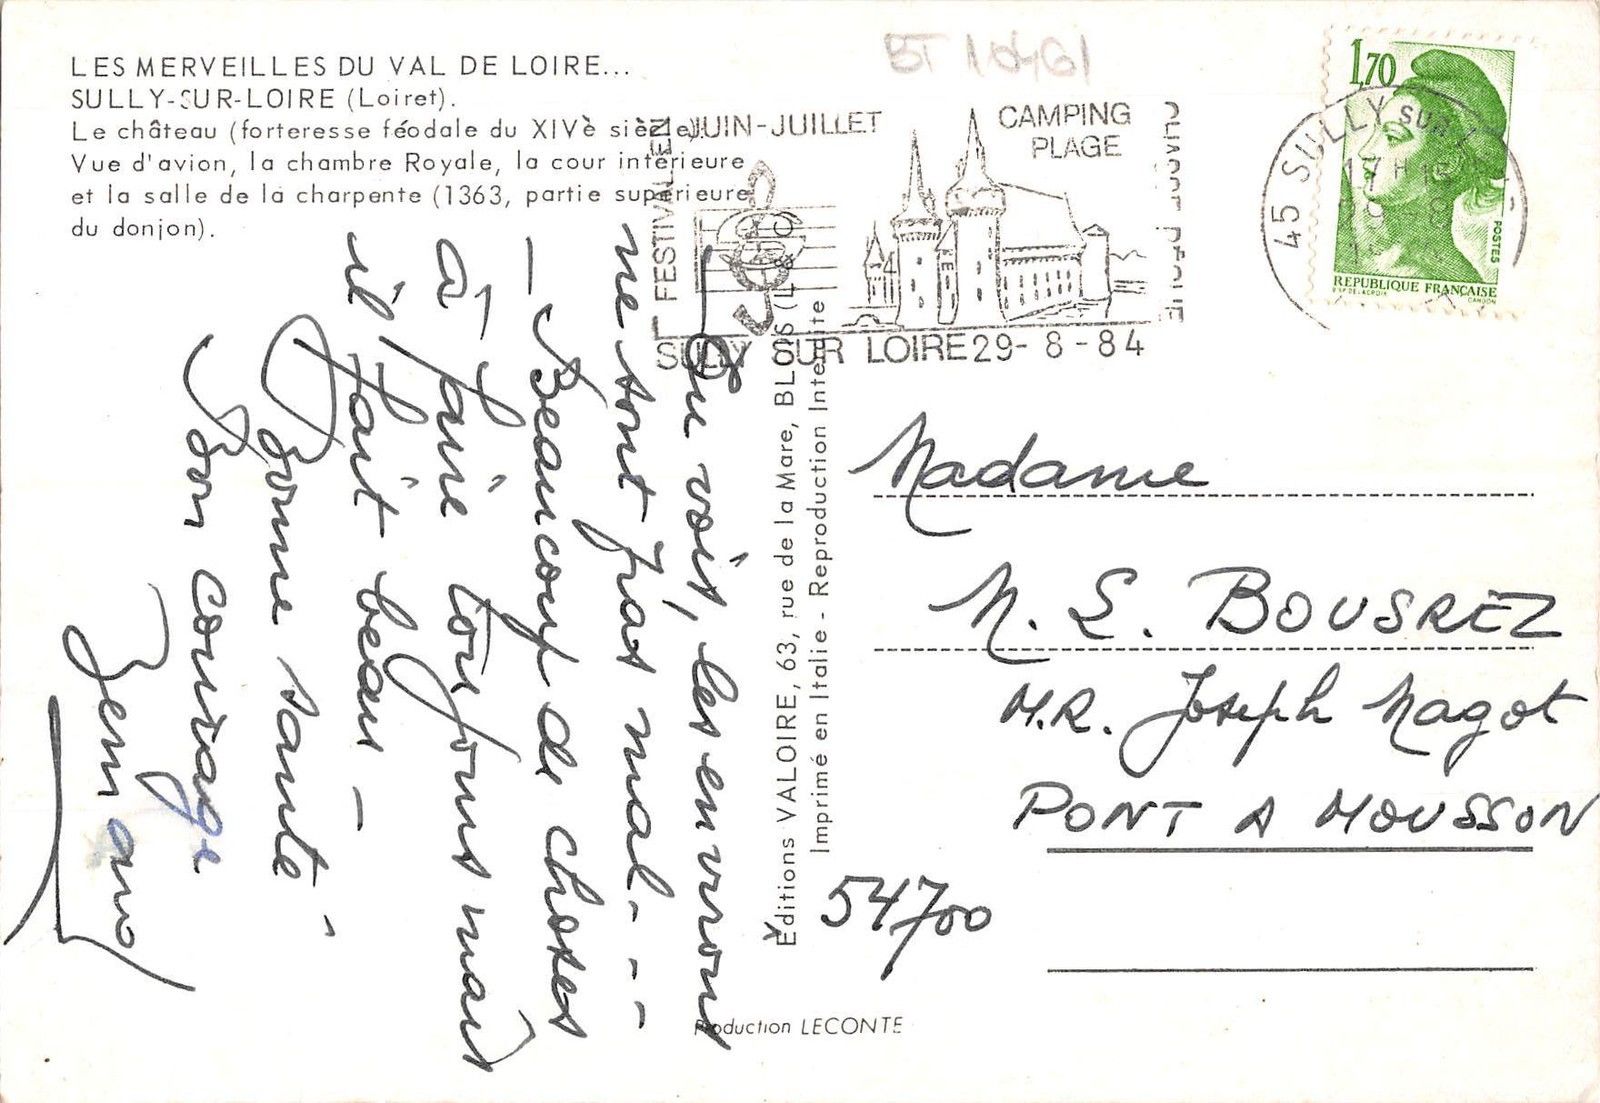 LES MERVEILLES DU VAL DE LOIRE...
SULLY-SUR-LOIRE (Loiret).
Le château (forteresse féodale du XIVè siècle).
Vue d'avion, la chambre Royale, la cour intérieure
et la salle de la charpente (1363, partie supérieure
du donjon).
BT 10461
FESTIVAL EN JUIN-JUILLET
CAMPING
PLAGE
SULLY SUR LOIRE 29-8-84
45 SULLY SUR
1,70
POSTES
REPUBLIQUE FRANÇAISE
Tu vois, les environs
ne sont pas mal - - -
- Beaucoup de choses
à faire toujours mais
il fait beau -
Bonne santé -
Bon courage
Bernard
Éditions VALOIRE, 63, rue de la Mare, BLOIS (L & C)
Imprimé en Italie - Reproduction Interdite
Production LECONTE
Madame
M. L. BOUSREZ
M.R. Joseph Magot
PONT A MOUSSON
54700